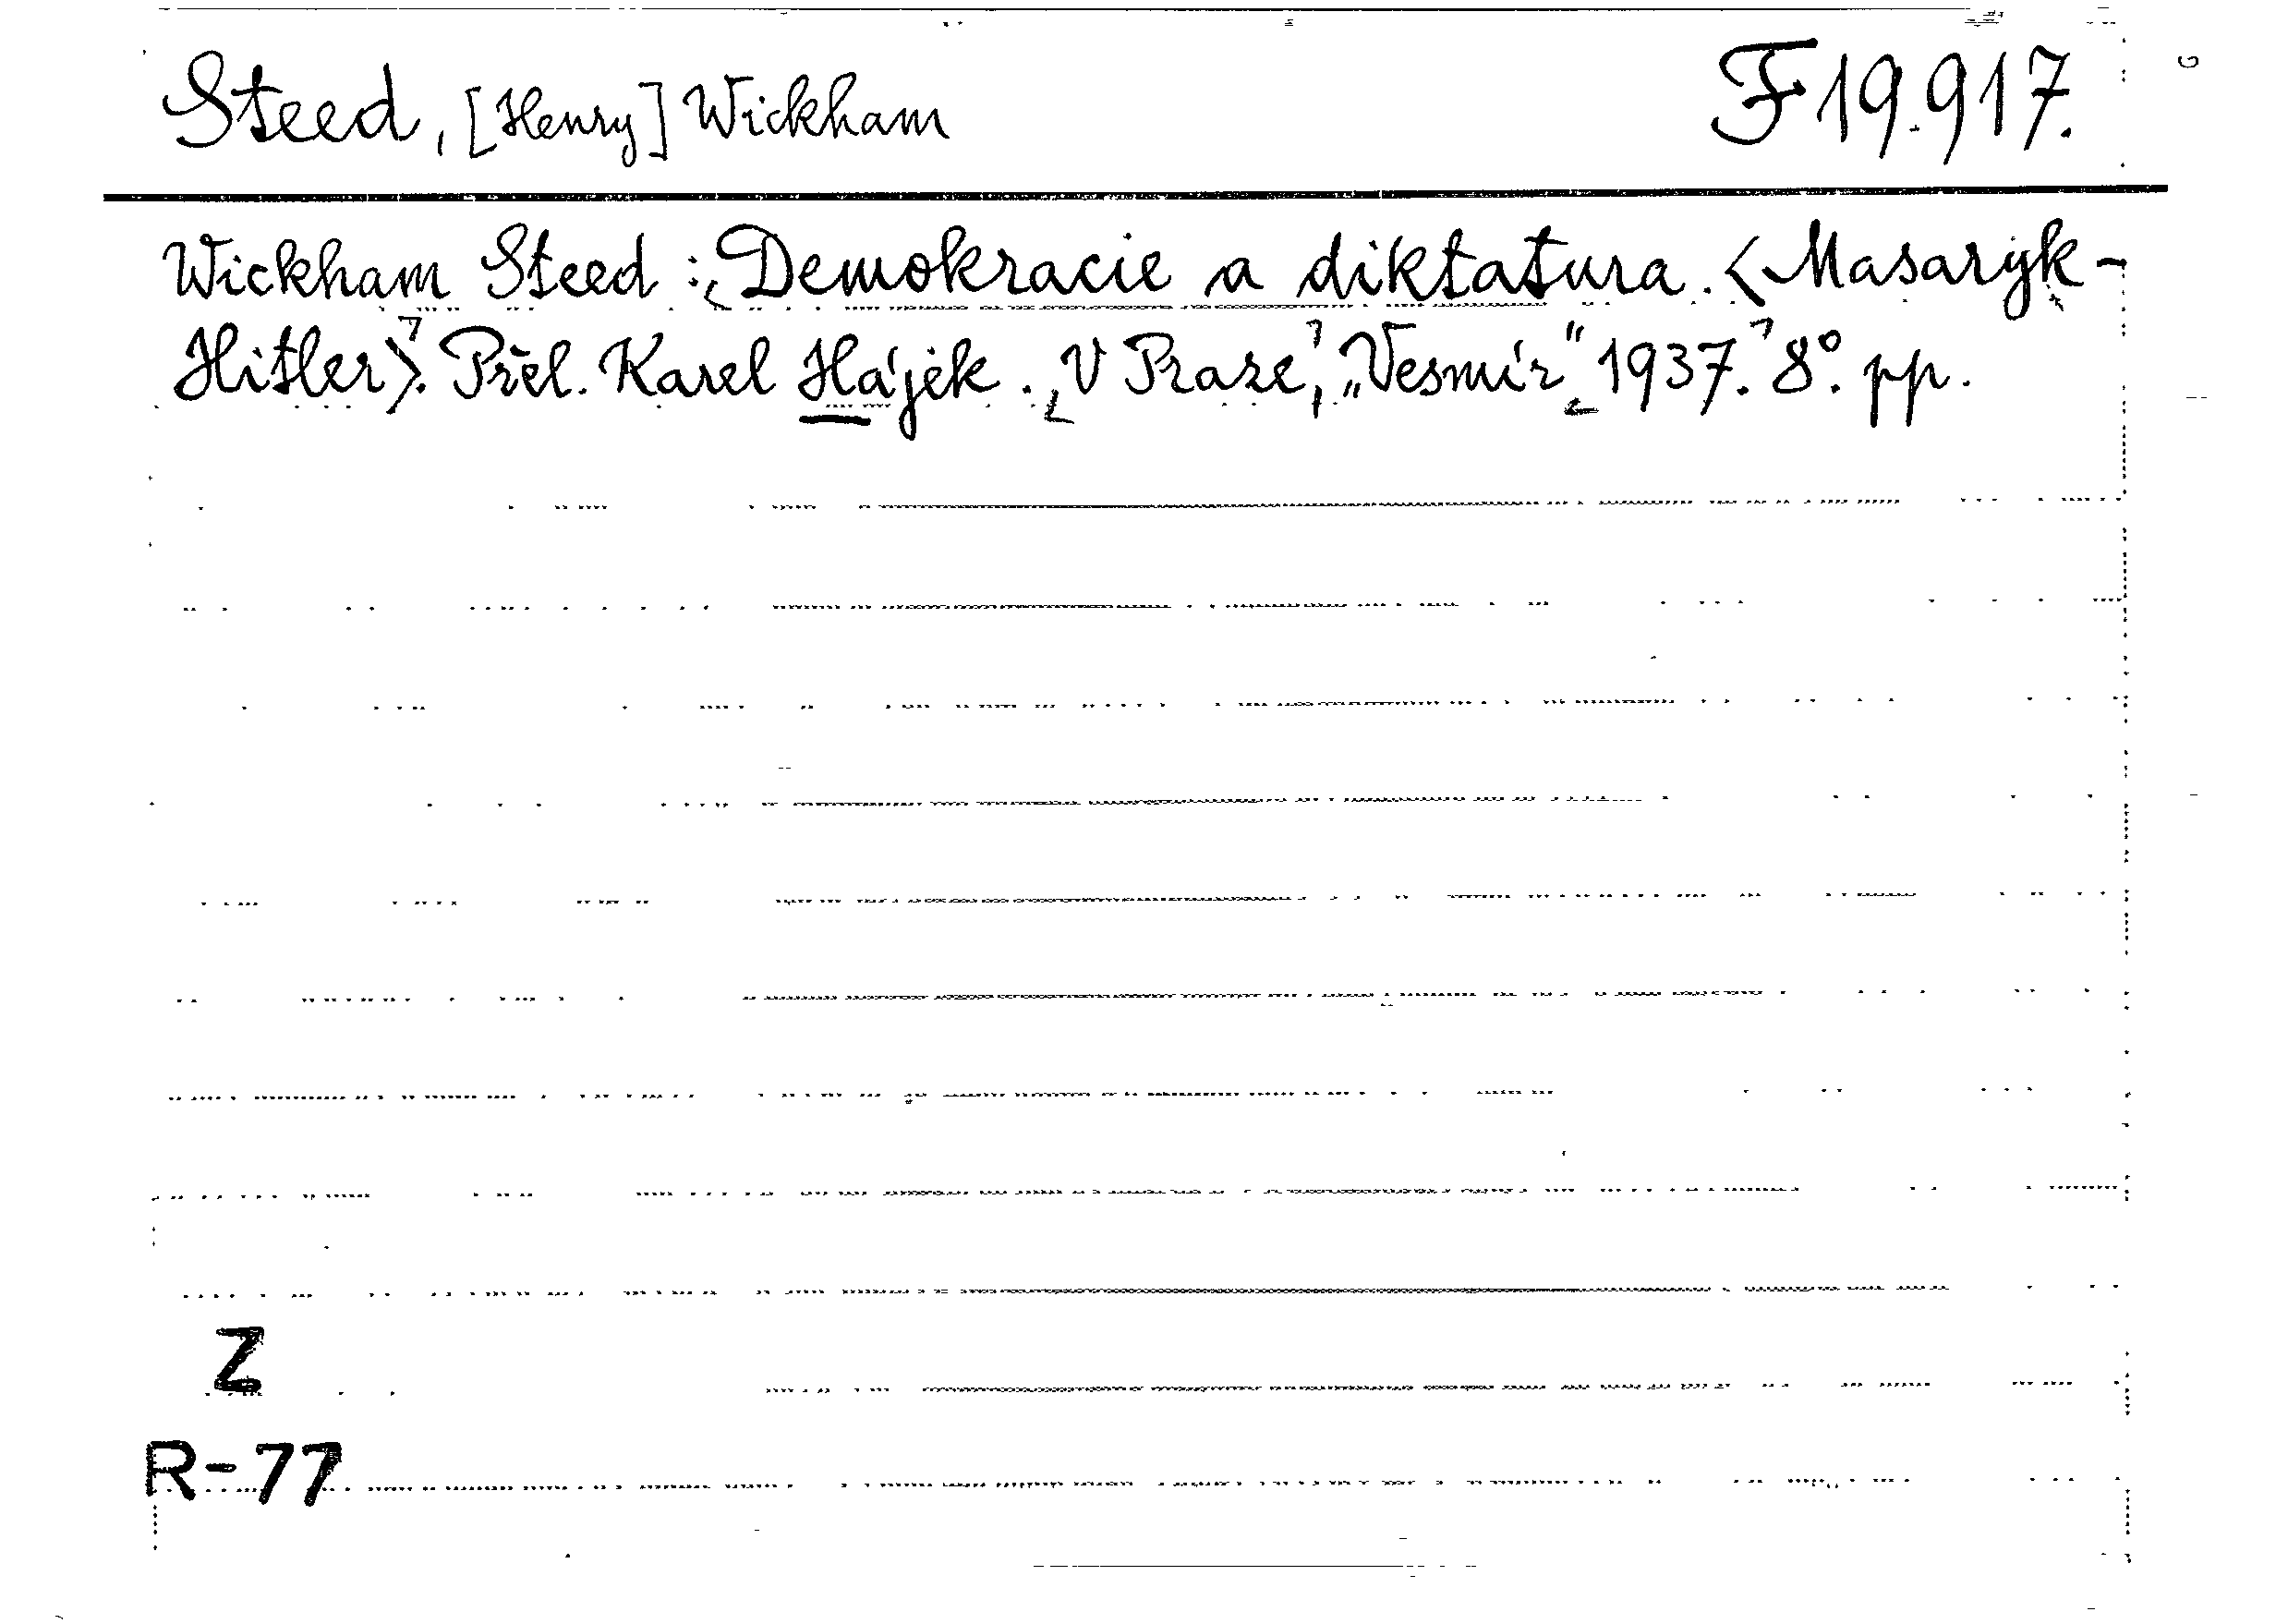 Steed, [Henry] Wickham F 19.917.
Wickham Steed: Demokracie a diktatura. <Masaryk-
Hitler>. Přel. Karel Hájek. V Praze, „Vesmír“ 1937. 8°. pp.
Z
R-77